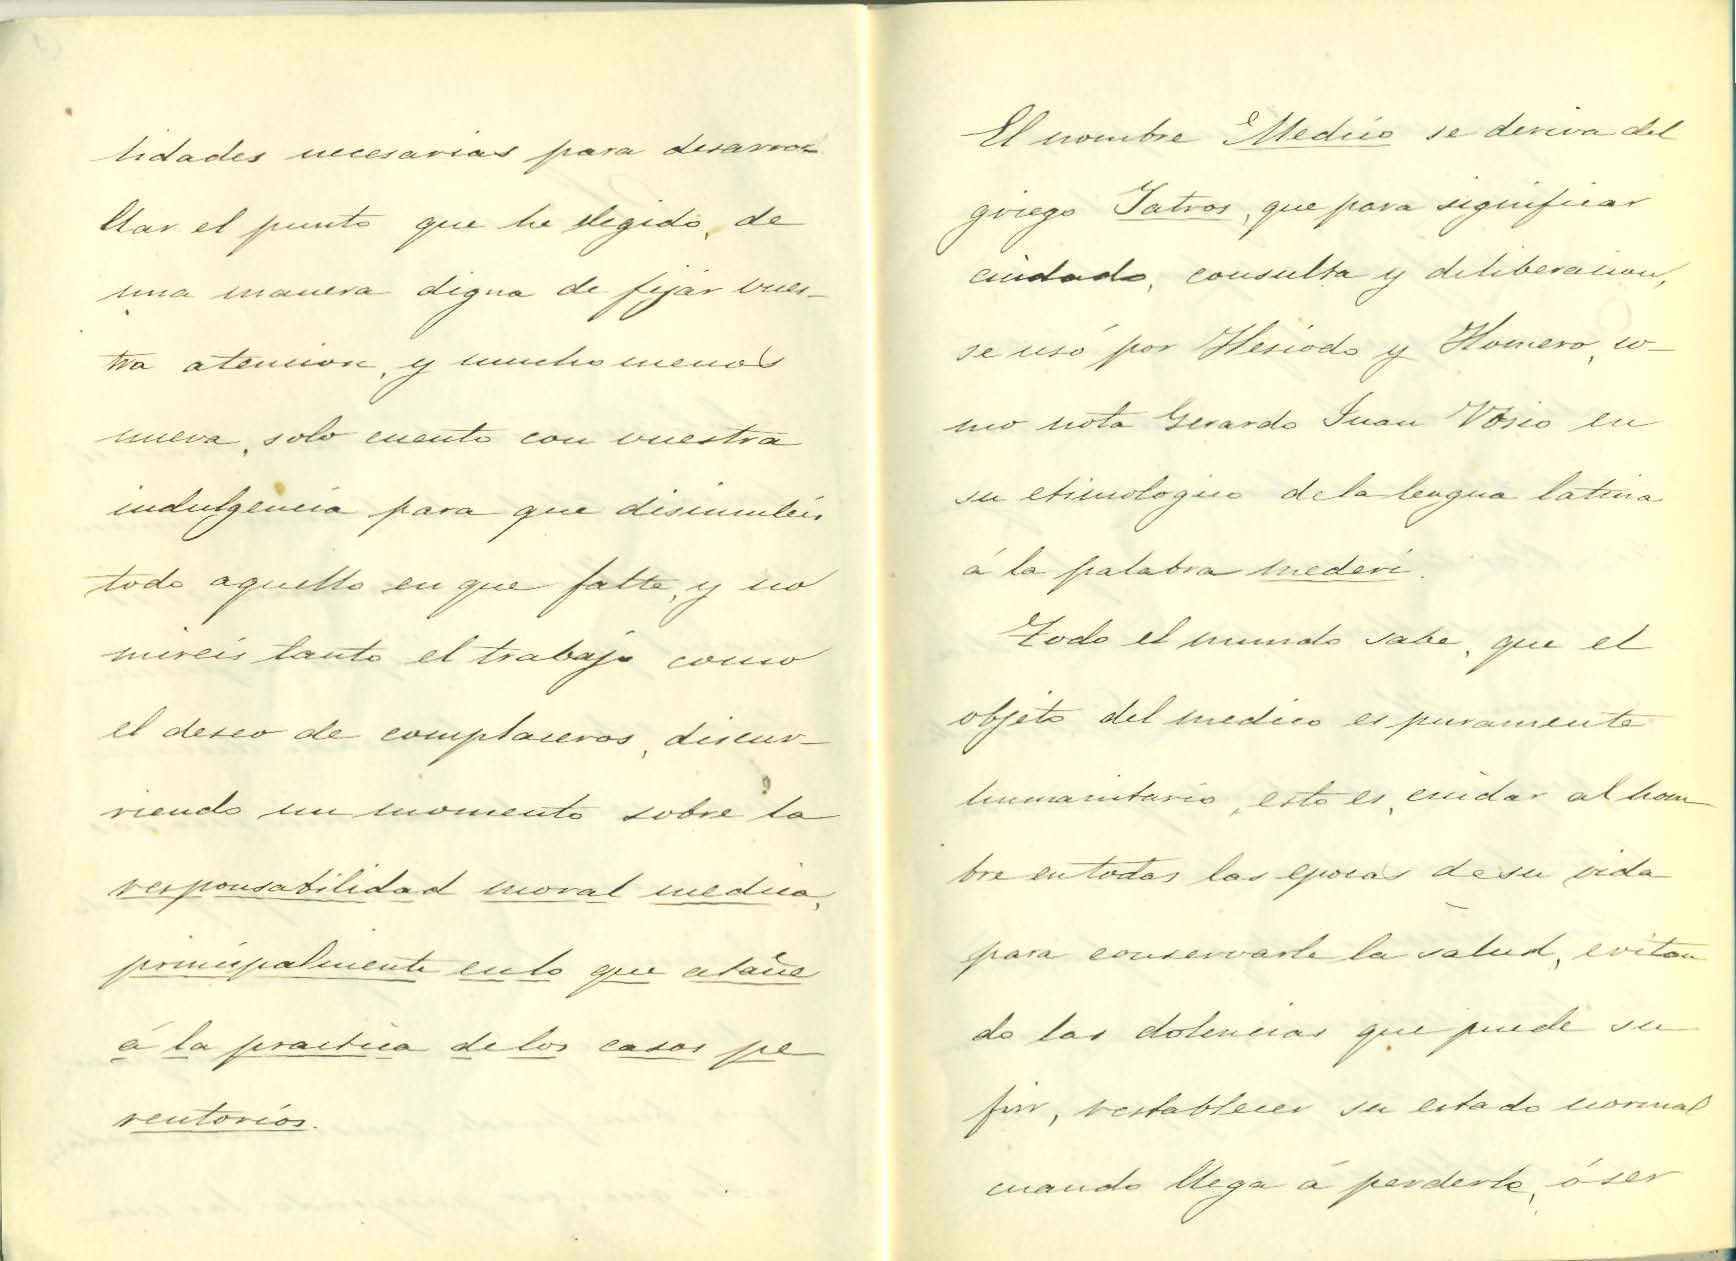 lidades necesarias para desarro-
llar el punto que he elegido, de
una manera digna de fijar vues-
tra atencion, y mucho menos
nueva, solo cuento con vuestra
indulgencia para que disimuleis
todo aquello en que falte, y no
mireis tanto el trabajo como
el deseo de complaceros, discur-
riendo un momento sobre la
responsabilidad moral medica,
principalmente en lo que atañe
á la practica de los casos pe
rentorios.
El nombre Medico se deriva del
griego Iatros, que para significar
cuidado, consulta y deliberacion,
se usó por Hesiodo y Homero, co-
mo nota Gerardo Juan Vosio en
su etimologico de la lengua latina
á la palabra mederi.
Todo el mundo sabe, que el
objeto del medico es puramente
humanitario, esto es, cuidar al hom
bre en todas las epocas de su vida
para conservarle la salud, evitan
do las dolencias que puede su
frir, restablecer su estado normal
cuando llega á perderlo, ó ser